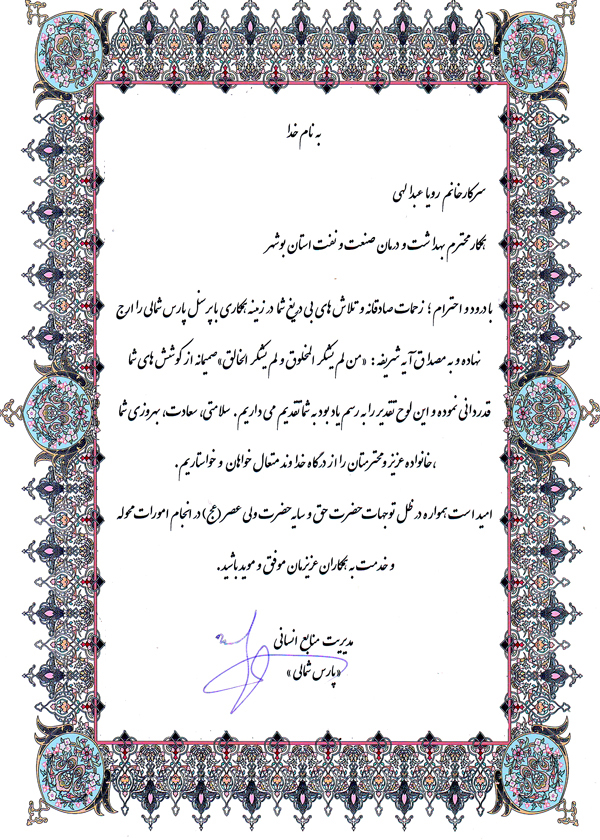 به نام خدا
سرکار خانم رویا عبدالهی
همکار محترم بهداشت و درمان صنعت و نفت استان بوشهر
با درود و احترام ؛ زحمات صادقانه و تلاش های بی دریغ شما در زمینه همکاری با پرسنل پارس شمالی را ارج
نهاده و به مصداق آیه شریفه : «من لم یشکر المخلوق و لم یشکر الخالق» صمیمانه از کوشش های شما
قدردانی نموده و این لوح تقدیر را به رسم یادبود به شما تقدیم می داریم . سلامتی، سعادت، بهروزی شما
،خانواده عزیز و محترمتان را از درگاه خداوند متعال خواهان و خواستاریم .
امید است همواره در ظل توجهات حضرت حق و سایه حضرت ولی عصر (عج) در انجام امورات محوله
و خدمت به همکاران عزیزمان موفق و موید باشید .
مدیریت منابع انسانی
«پارس شمالی»